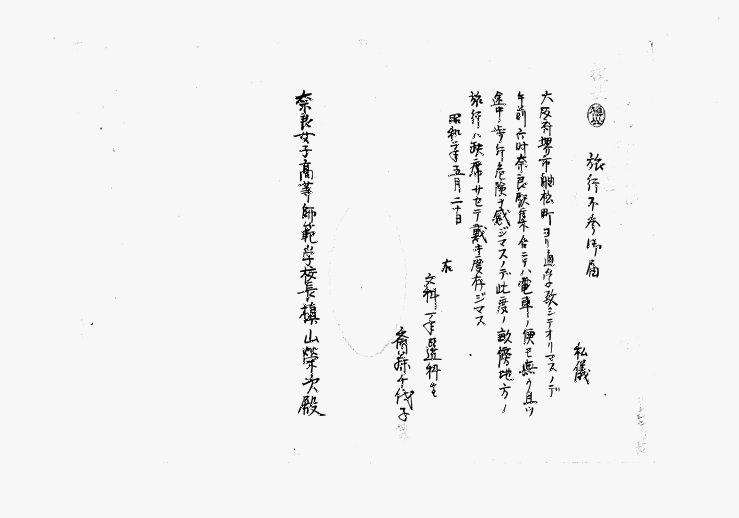 旅行不参御届
私儀
大阪府堺市舳松町ヨリ通学致シテオリマスノデ
午前六時奈良駅集合ニテハ電車ノ便モ無ク且ツ
途中歩行危険ヲ感ジマスノデ此度ノ畝傍地方ノ
旅行ハ欠席サセテ戴キ度存ジマス
昭和二年五月二十日
右
文科一年選科生
斎藤千代子
奈良女子高等師範学校長槙山榮次殿